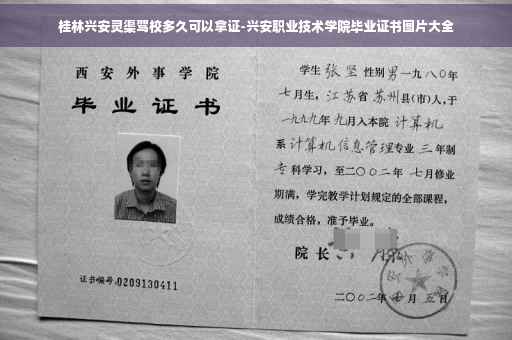 桂林兴安灵渠驾校多久可以拿证-兴安职业技术学院毕业证书图片大全
西安外事学院
毕业证书
证书编号:0209130411
学生 张坚 性别男 一九八〇年
七月生,江苏省 苏州县(市)人,于
一九九九年 九月入本院 计算机
系 计算机信息管理专业 三 年制
专 科学习,至二〇〇二年 七月修业
期满,学完教学计划规定的全部课程,
成绩合格,准予毕业。
院长
二〇〇二年 月 五日